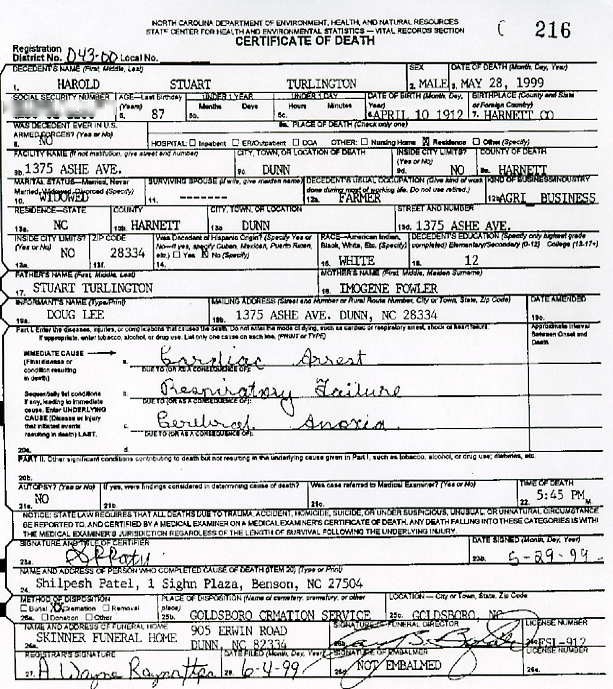 NORTH CAROLINA DEPARTMENT OF ENVIRONMENT, HEALTH, AND NATURAL RESOURCES
STATE CENTER FOR HEALTH AND ENVIRONMENTAL STATISTICS — VITAL RECORDS SECTION
CERTIFICATE OF DEATH
216
Registration
District No. 043-00 Local No.
DECEDENT'S NAME (First, Middle, Last) SEX DATE OF DEATH (Month, Day, Year)
1. HAROLD STUART TURLINGTON 2. MALE 3. MAY 28, 1999
SOCIAL SECURITY NUMBER AGE—Last Birthday UNDER 1 YEAR UNDER 1 DAY DATE OF BIRTH (Month, Day, Year) BIRTHPLACE (County and State
(Years) Months Days Hours Minutes or Foreign Country)
5a. 87 5b. 5c. 6. APRIL 10 1912 7. HARNETT CO
WAS DECEDENT EVER IN U.S. 9a. PLACE OF DEATH (Check only one)
ARMED FORCES? (Yes or No)
8. NO HOSPITAL: Inpatient ER/Outpatient DOA OTHER: Nursing Home X Residence Other (Specify)
FACILITY NAME (If not institution, give street and number) CITY, TOWN, OR LOCATION OF DEATH INSIDE CITY LIMITS? COUNTY OF DEATH
(Yes or No)
9b. 1375 ASHE AVE. 9c. DUNN 9d. NO 9e. HARNETT
MARITAL STATUS—Married, Never SURVIVING SPOUSE (If wife, give maiden name) DECEDENT'S USUAL OCCUPATION (Give kind of work KIND OF BUSINESS/INDUSTRY
Married, Widowed, Divorced (Specify) done during most of working life. Do not use retired.)
10. WIDOWED 11. ------- 12a. FARMER 12b. AGRI BUSINESS
RESIDENCE—STATE COUNTY CITY, TOWN, OR LOCATION STREET AND NUMBER
13a. NC 13b. HARNETT 13c. DUNN 13d. 1375 ASHE AVE.
INSIDE CITY LIMITS? ZIP CODE Was Decedent of Hispanic Origin? (Specify Yes or RACE—American Indian, DECEDENT'S EDUCATION (Specify only highest grade
(Yes or No) No—If yes, specify Cuban, Mexican, Puerto Rican, Black, White, Etc. (Specify) completed) Elementary/Secondary (0-12) College (13-17+)
etc.) Yes X No (Specify)
13e. NO 13f. 28334 14. 15. WHITE 16. 12
FATHER'S NAME (First, Middle, Last) MOTHER'S NAME (First, Middle, Maiden Surname)
17. STUART TURLINGTON 18. IMOGENE FOWLER
INFORMANT'S NAME (Type/Print) MAILING ADDRESS (Street and Number or Rural Route Number, City or Town, State, Zip Code) DATE AMENDED
19a. DOUG LEE 19b. 1375 ASHE AVE. DUNN, NC 28334 19c.
Part I. Enter the diseases, injuries, or complications that caused the death. Do not enter the mode of dying, such as cardiac or respiratory arrest, shock or heart failure. Approximate Interval
If appropriate, enter tobacco, alcohol, or drug use. List only one cause on each line. (PRINT or TYPE) Between Onset and
Death
IMMEDIATE CAUSE a. Cardiac Arrest
(Final disease or DUE TO (OR AS A CONSEQUENCE OF):
condition resulting
in death) b. Respiratory Failure
Sequentially list conditions DUE TO (OR AS A CONSEQUENCE OF):
if any, leading to immediate
cause. Enter UNDERLYING c. Cerebral Anoxia
CAUSE (Disease or injury DUE TO (OR AS A CONSEQUENCE OF):
that initiated events
resulting in death) LAST. d.
20a.
PART II. Other significant conditions contributing to death but not resulting in the underlying cause given in Part I, such as tobacco, alcohol, or drug use; diabetes, etc.
20b.
AUTOPSY? (Yes or No) If yes, were findings considered in determining cause of death? Was case referred to Medical Examiner? (Yes or No) TIME OF DEATH
21a. NO 21b. 21c. 22. 5:45 PM
NOTICE: STATE LAW REQUIRES THAT ALL DEATHS DUE TO TRAUMA, ACCIDENT, HOMICIDE, SUICIDE, OR UNDER SUSPICIOUS, UNUSUAL OR UNNATURAL CIRCUMSTANCE
BE REPORTED TO, AND CERTIFIED BY A MEDICAL EXAMINER ON A MEDICAL EXAMINER'S CERTIFICATE OF DEATH. ANY DEATH FALLING INTO THESE CATEGORIES IS WITHI
THE MEDICAL EXAMINER'S JURISDICTION REGARDLESS OF THE LENGTH OF SURVIVAL FOLLOWING THE UNDERLYING INJURY.
SIGNATURE AND TITLE OF CERTIFIER DATE SIGNED (Month, Day, Year)
23a. 23b. 5-29-99
NAME AND ADDRESS OF PERSON WHO COMPLETED CAUSE OF DEATH (ITEM 20) (Type or Print)
24. Shilpesh Patel, 1 Sighn Plaza, Benson, NC 27504
METHOD OF DISPOSITION PLACE OF DISPOSITION (Name of cemetery, crematory, or other LOCATION — City or Town, State, Zip Code
Burial XX Cremation Removal place)
25a. Donation Other 25b. GOLDSBORO CRMATION SERVICE 25c. GOLDSBORO, NC
NAME AND ADDRESS OF FUNERAL HOME 905 ERWIN ROAD SIGNATURE OF FUNERAL DIRECTOR LICENSE NUMBER
26a. SKINNER FUNERAL HOME DUNN, NC 82334 FSL-912
REGISTRAR'S SIGNATURE DATE FILED (Month, Day, Year) SIGNATURE OF EMBALMER LICENSE NUMBER
27. A Wayne Raynor 28. 6-4-99 NOT EMBALMED